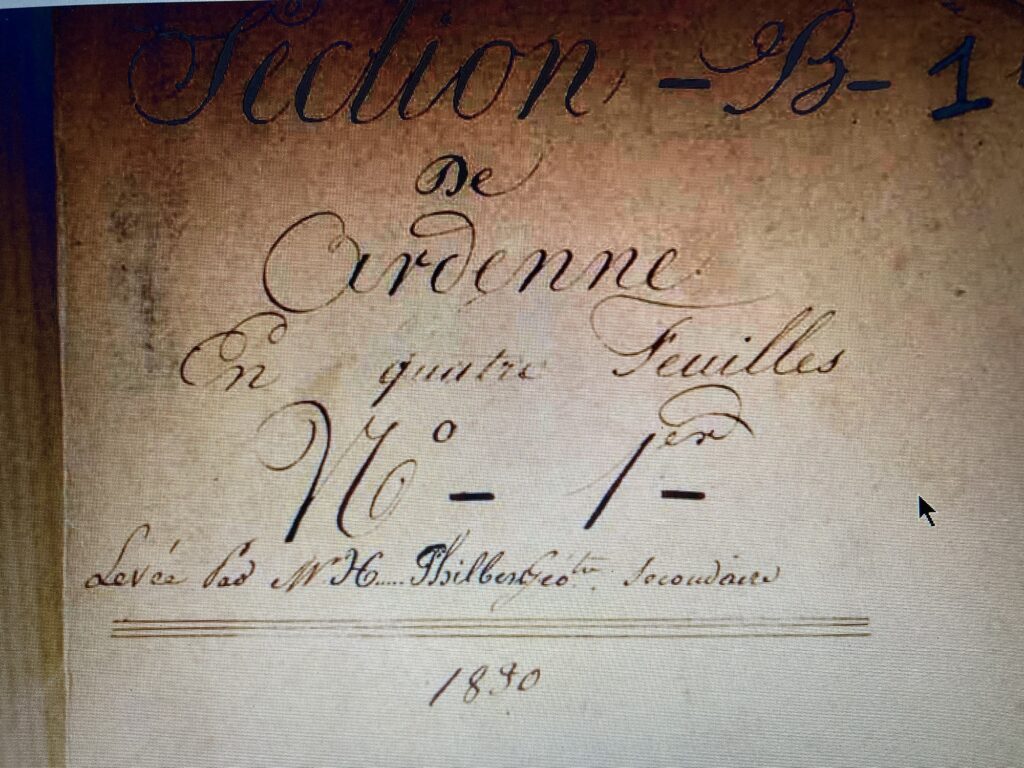 Section - B - 1
De
Ardenne
En quatre Feuilles
N° - 1er -
Levée Par Mr H..... Philbert Géotre. Secondaire
1830